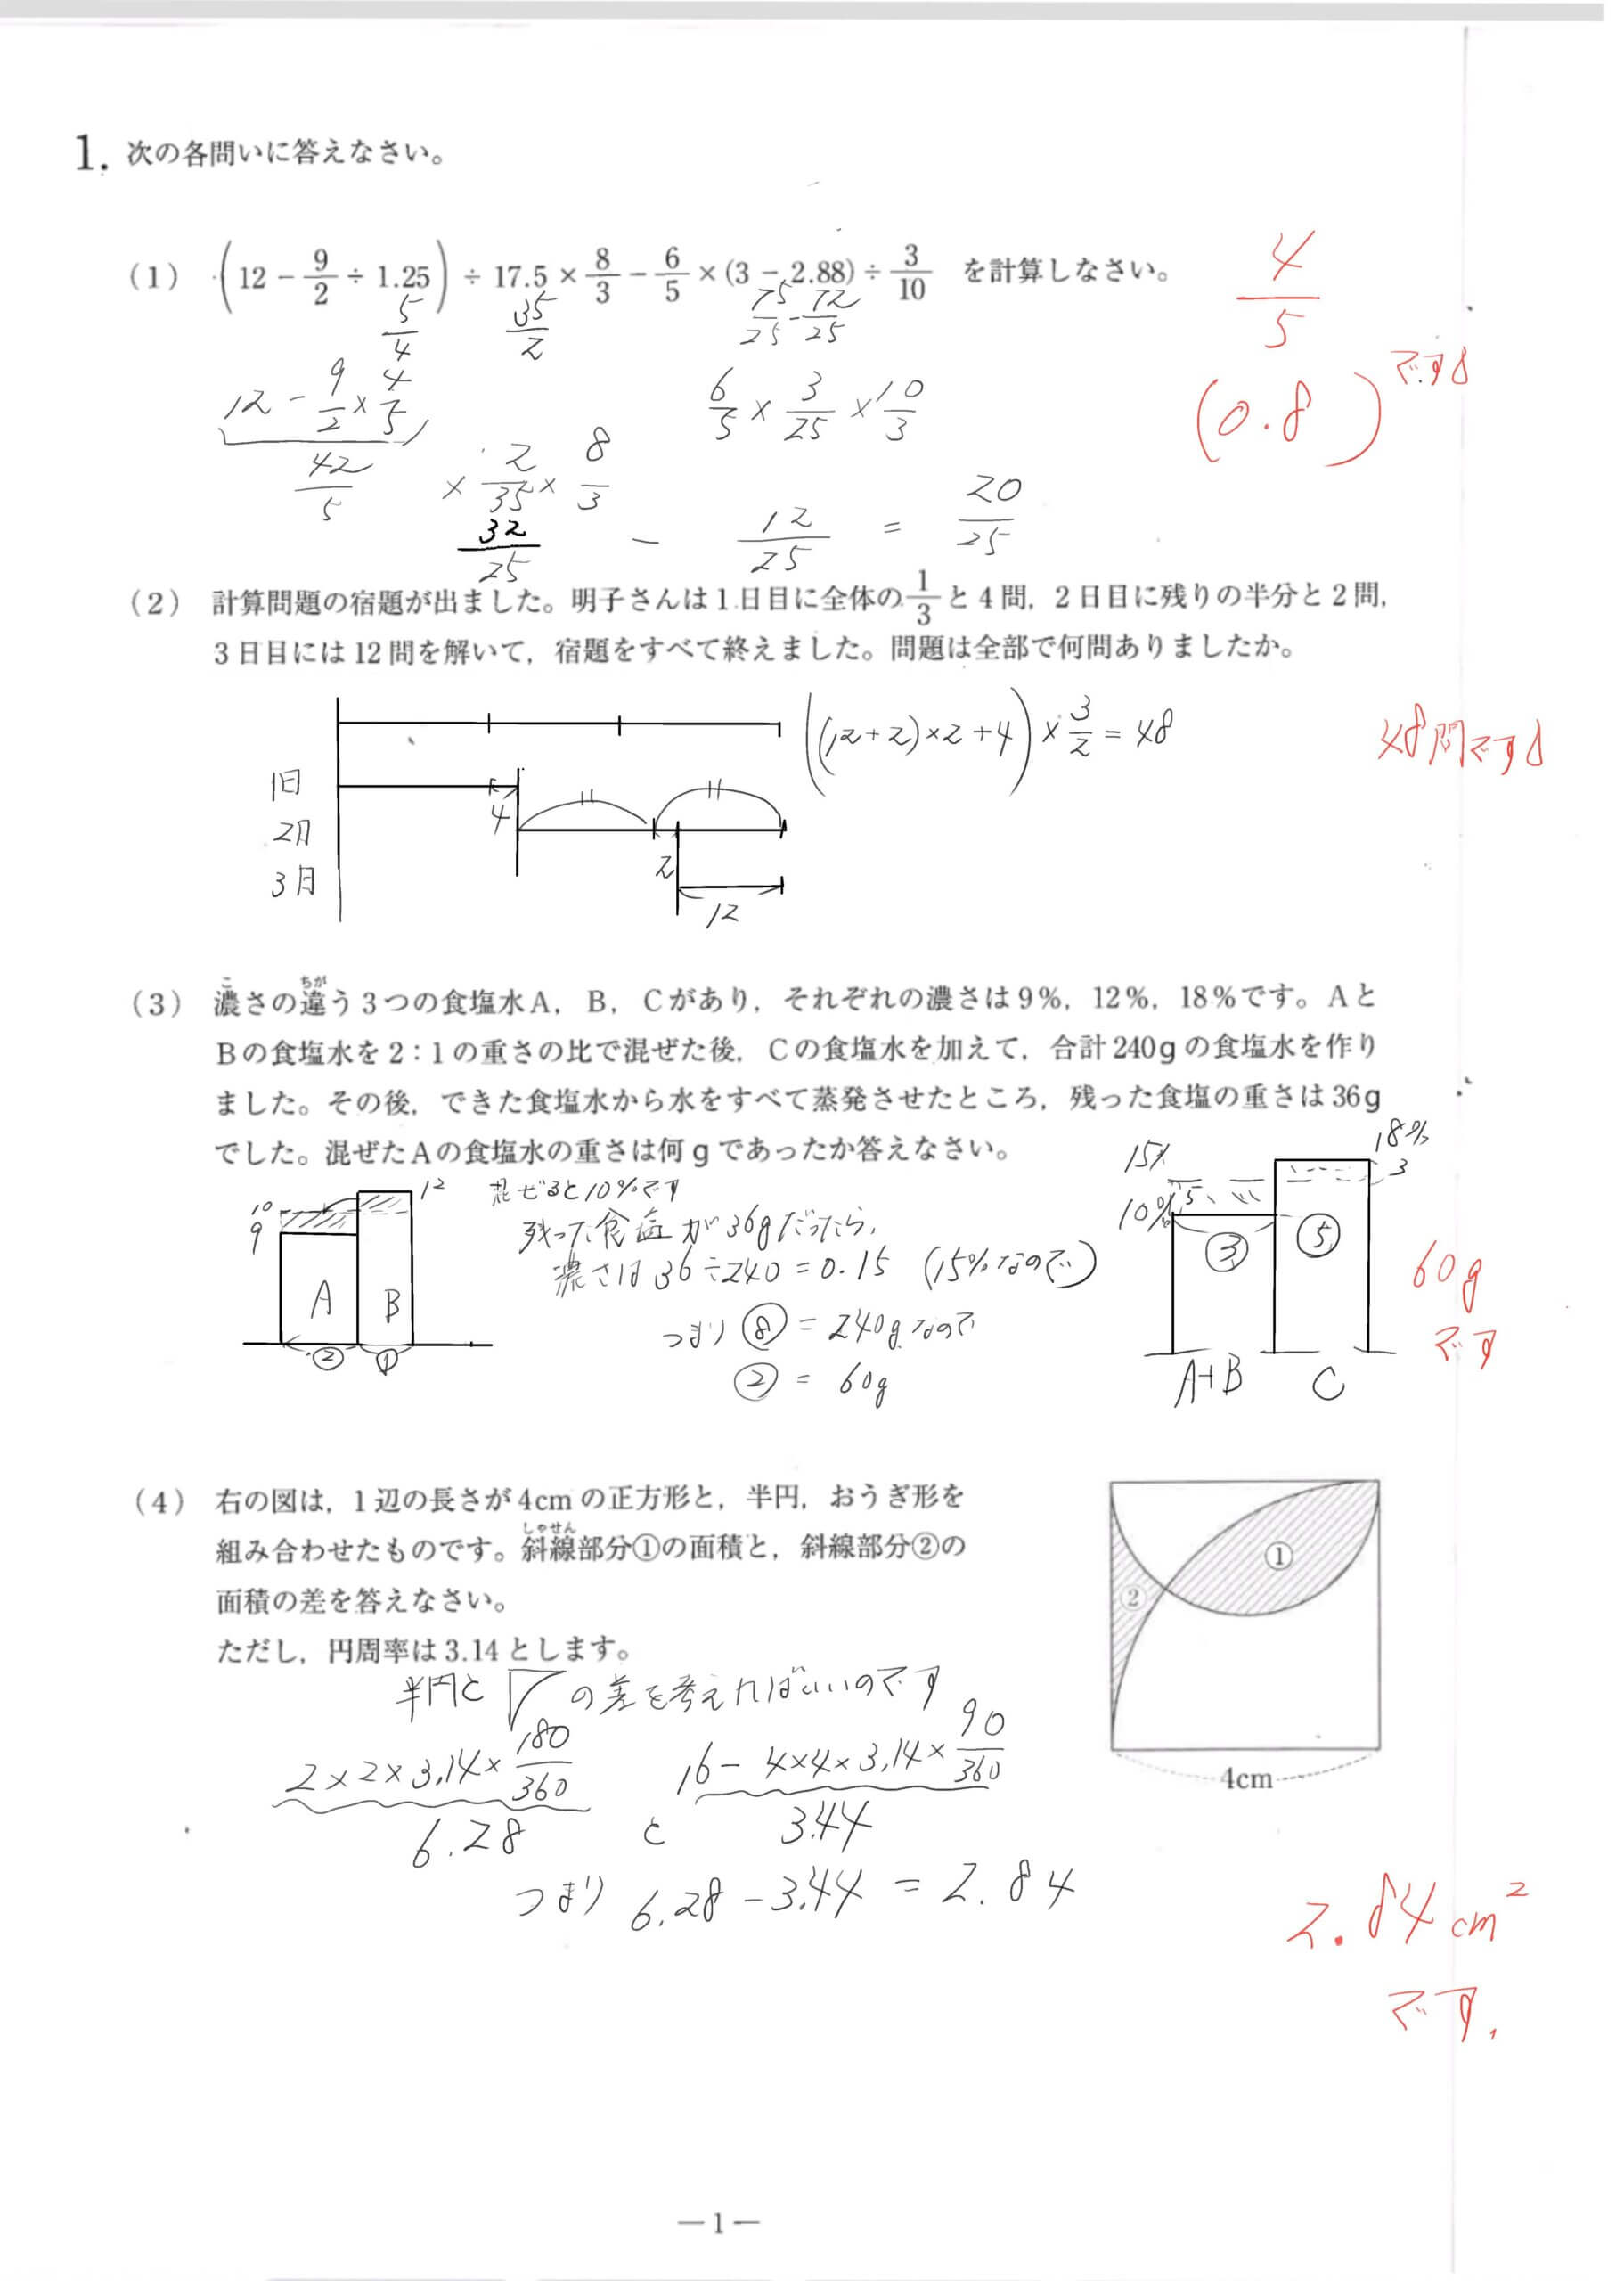 1. 次の各問いに答えなさい。
(1) (12 − 9/2 ÷ 1.25) ÷ 17.5 × 8/3 − 6/5 × (3 − 2.88) ÷ 3/10 を計算しなさい。
5/4 35/2 75/25 - 72/25
12 - 9/2 × 4/5
6/5 × 3/25 × 10/3
42/5 × 2/35 × 8/3
32/25 - 12/25 = 20/25
4/5
(0.8) です
(2) 計算問題の宿題が出ました。明子さんは1日目に全体の1/3と4問，2日目に残りの半分と2問，
3日目には12問を解いて，宿題をすべて終えました。問題は全部で何問ありましたか。
((12+2)×2+4)×3/2=48
48問です
1日
4
2日
2
3日
12
(3) 濃さの違う3つの食塩水A，B，Cがあり，それぞれの濃さは9%，12%，18%です。Aと
こ ちが
Bの食塩水を2：1の重さの比で混ぜた後，Cの食塩水を加えて，合計240gの食塩水を作り
ました。その後，できた食塩水から水をすべて蒸発させたところ，残った食塩の重さは36g
でした。混ぜたAの食塩水の重さは何gであったか答えなさい。
10 9 12
A B
② ①
混ぜると10%です
残った食塩が36gだったら，
濃さは36÷240=0.15 (15%なので)
つまり ⑧ = 240gなので
② = 60g
15% 18%
3
10% 5
③ ⑤
A+B C
60g
です
(4) 右の図は，1辺の長さが4cmの正方形と，半円，おうぎ形を
組み合わせたものです。斜線部分①の面積と，斜線部分②の
しゃせん
面積の差を答えなさい。
ただし，円周率は3.14とします。
①
②
4cm
半円と の差を考えればいいのです
2×2×3.14×180/360
16-4×4×3.14×90/360
6.28 と 3.44
つまり 6.28-3.44=2.84
2.84cm²
です.
—1—